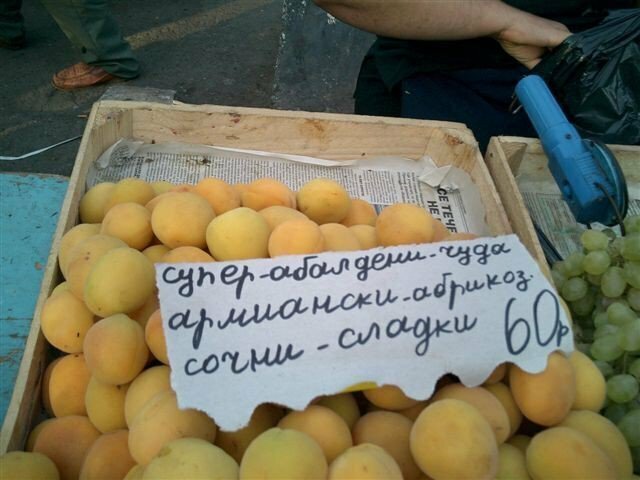 СЕ ТЕЧЕ
НЕ
супер-абалдени-чуда
армиански-абрикоз.
сочни-сладки 60р